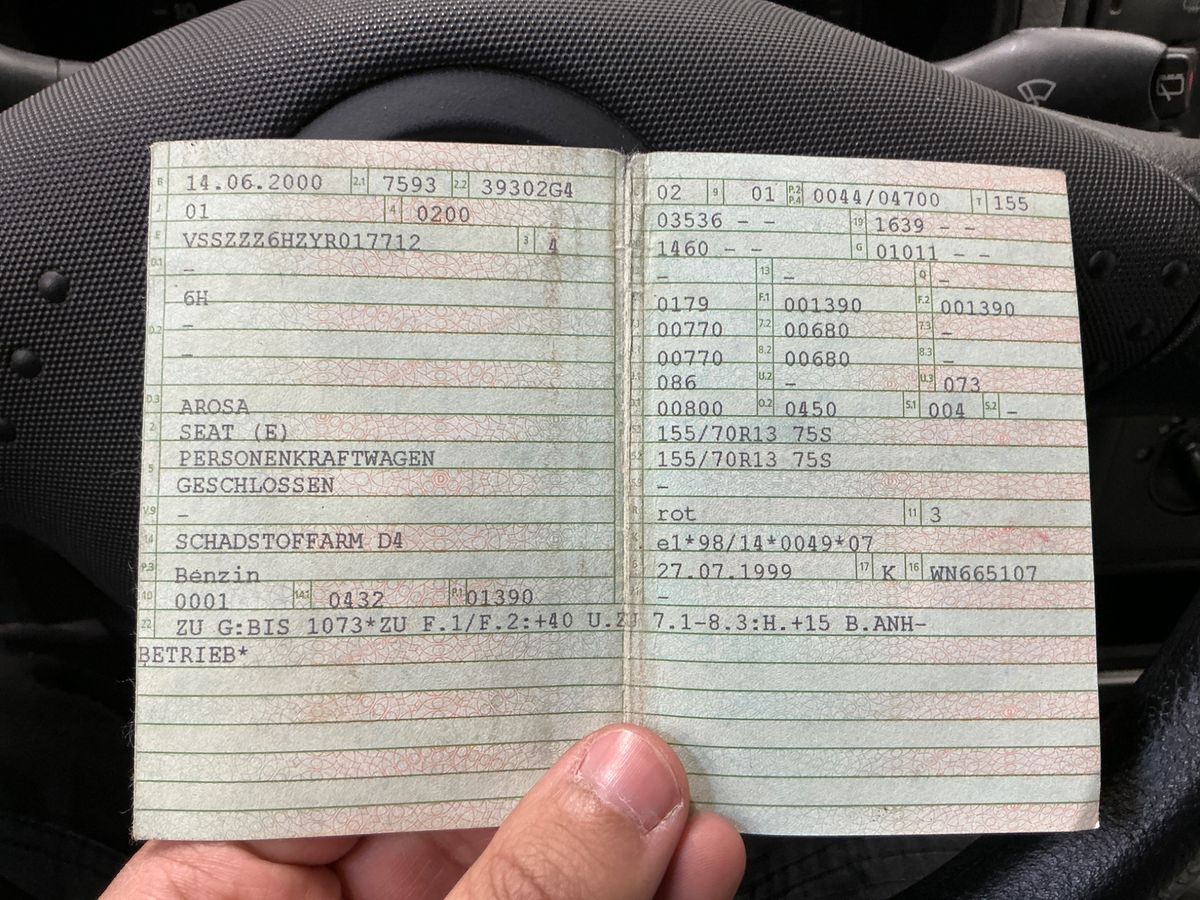 B 14.06.2000 2.1 7593 2.2 39302G4
J 01 4 0200
E VSSZZZ6HZYR017712 3 4
D.1 –
6H
–
D.2 –
D.3 AROSA
2 SEAT (E)
5 PERSONENKRAFTWAGEN
GESCHLOSSEN
V.9 –
14 SCHADSTOFFARM D4
P.3 Benzin
10 0001 14.1 0432 P.1 01390
22 ZU G:BIS 1073*ZU F.1/F.2:+40 U.ZU 7.1-8.3:H.+15 B.ANH-
BETRIEB*
02 9 01 P.2 P.4 0044/04700 T 155
03536 – – 19 1639 – –
1460 – – G 01011 – –
– 13 – Q –
0179 F.1 001390 F.2 001390
00770 7.2 00680 7.3 –
00770 8.2 00680 8.3 –
086 U.2 – U.3 073
00800 O.2 0450 S.1 004 S.2 –
155/70R13 75S
155/70R13 75S
–
R rot 11 3
K e1*98/14*0049*07
6 27.07.1999 17 K 16 WN665107
–